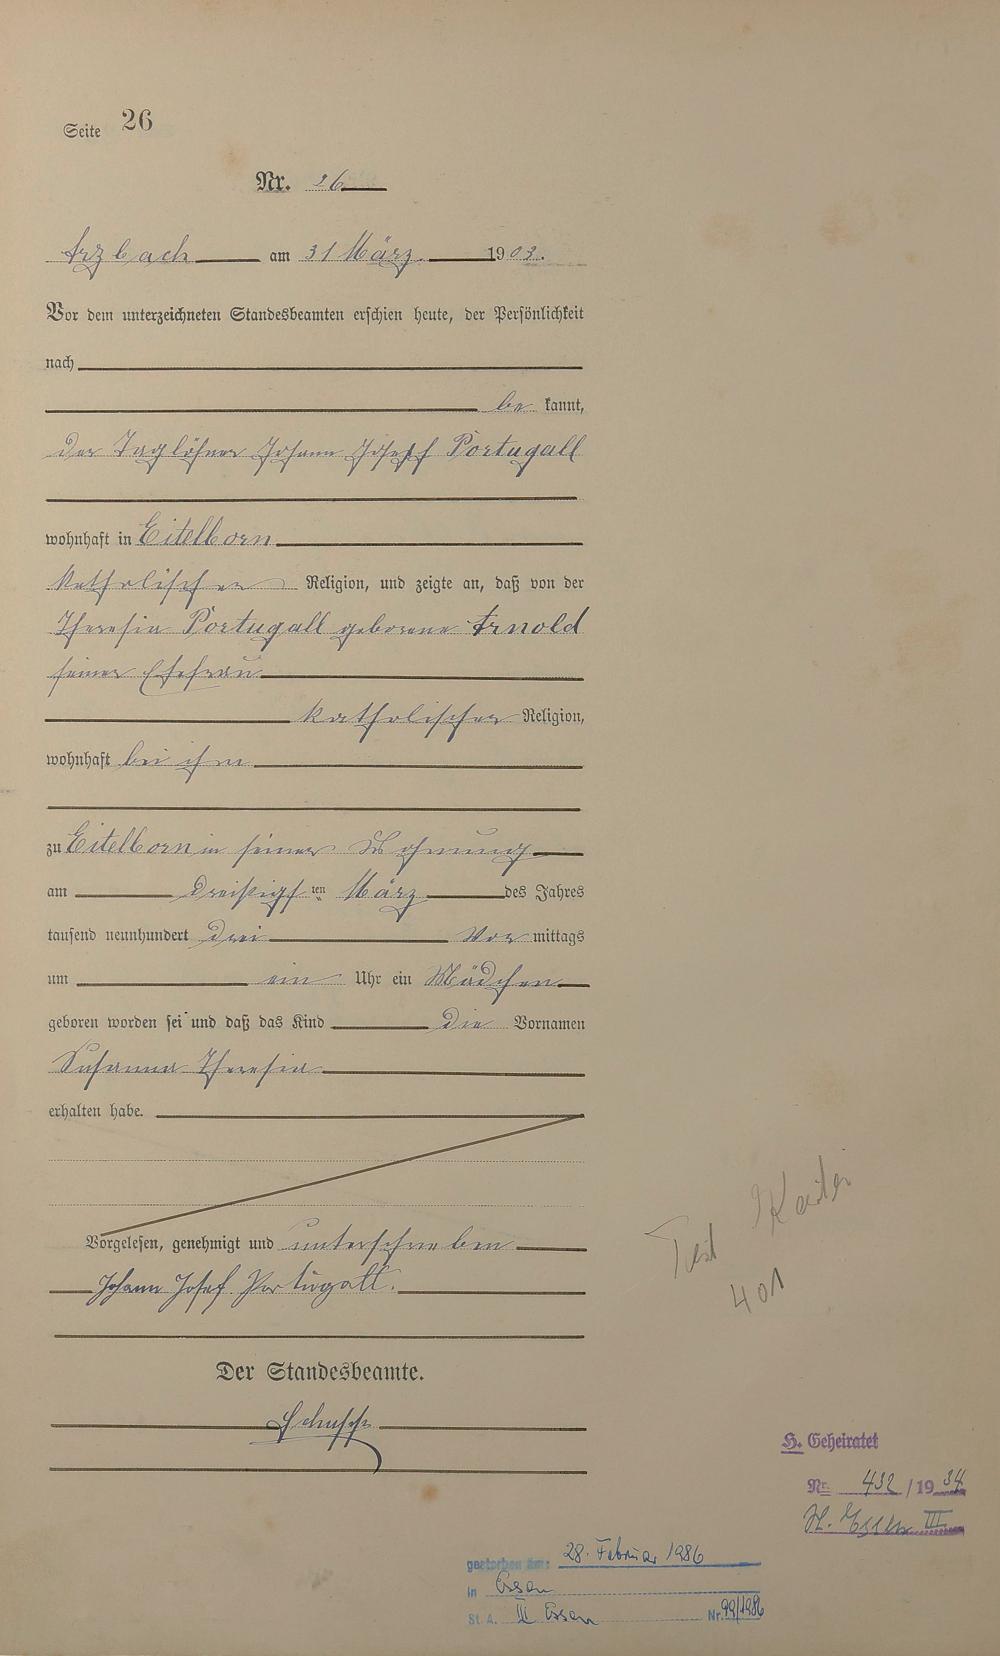 Seite 26
Nr. 26
Arzbach am 31 März 1903.
Vor dem unterzeichneten Standesbeamten erschien heute, der Persönlichkeit
nach
be kannt,
der Taglöhner Johann Joseph Portugall
wohnhaft in Eitelborn
katholischer Religion, und zeigte an, daß von der
Theresia Portugall geborene Arnold
seiner Ehefrau
katholischer Religion,
wohnhaft bei ihm
zu Eitelborn in seiner Wohnung
am dreißigsten März des Jahres
tausend neunhundert drei Vor mittags
um ein Uhr ein Mädchen
geboren worden sei und daß das Kind die Vornamen
Susanna Theresia
erhalten habe.
Vorgelesen, genehmigt und unterschrieben
Johann Josef Portugall.
Der Standesbeamte.
H. Geheiratet
Nr. 432 / 19 34
St. Essen III
gestorben am: 28. Februar 1986
in Essen
St. A. III Essen Nr. 99/1986
401